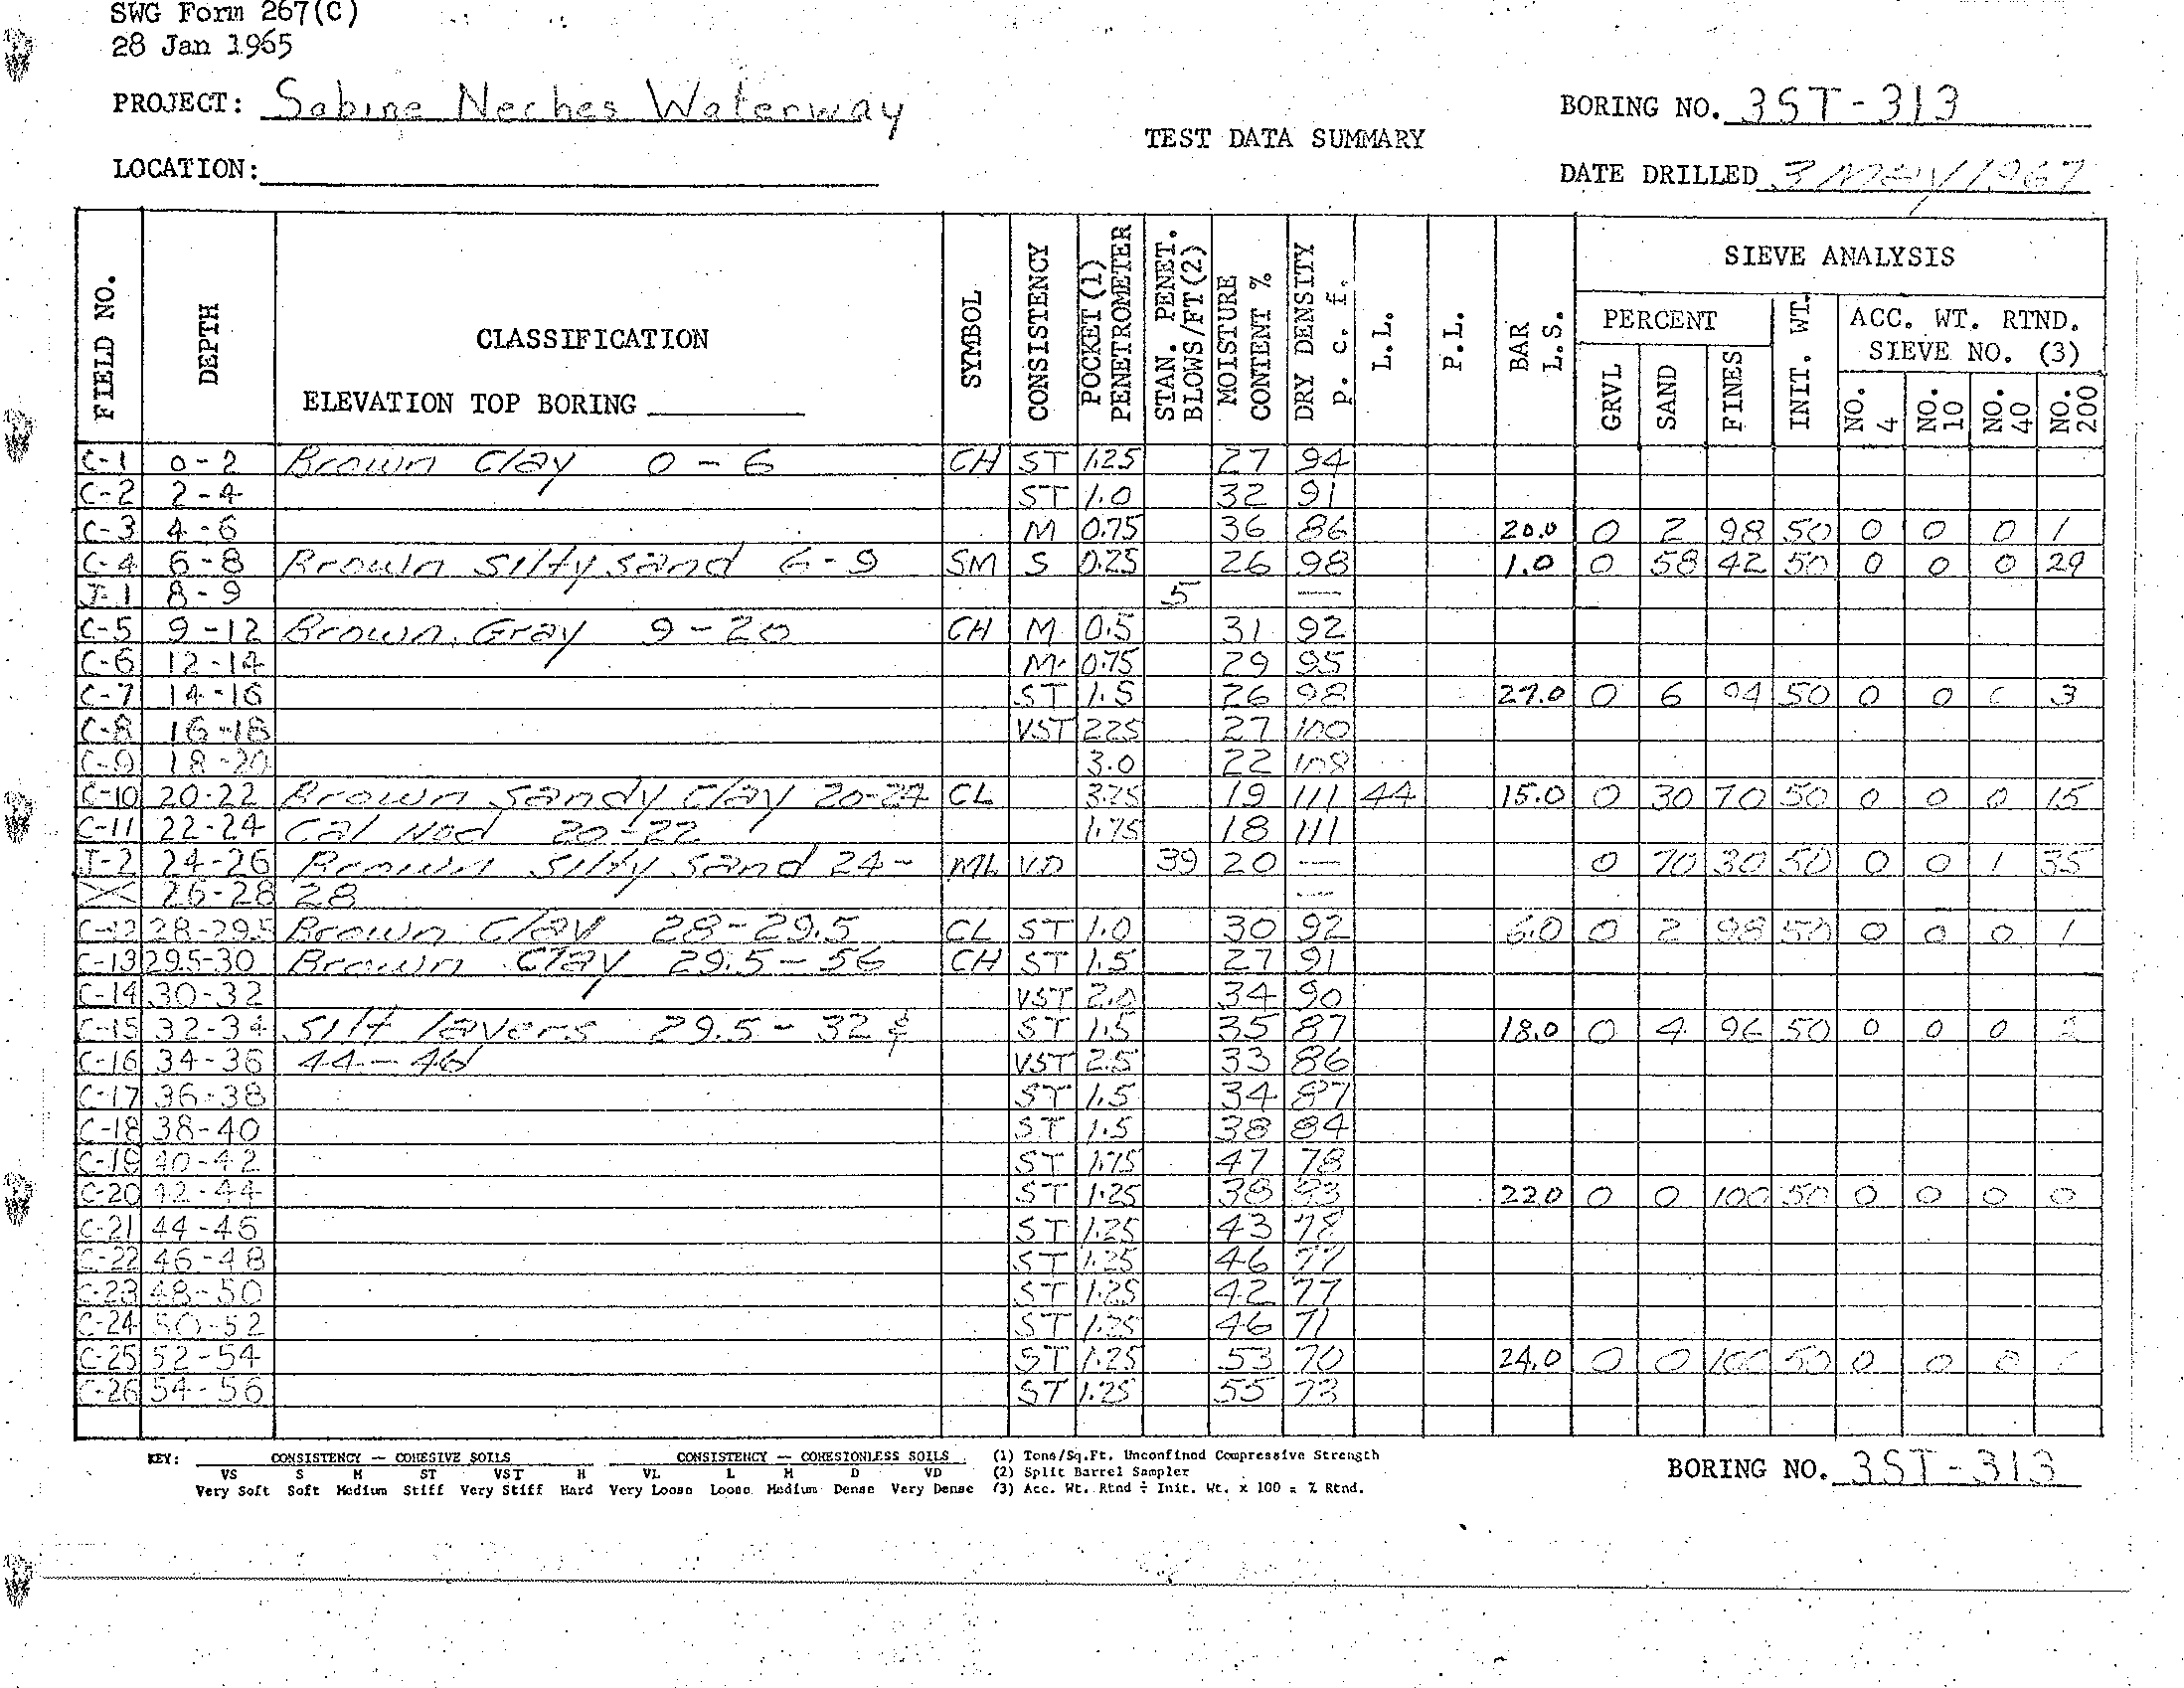 SWG Form 267(C)
28 Jan 1965
PROJECT: Sabine Neches Waterway
BORING NO. 3ST-313
TEST DATA SUMMARY
LOCATION:
DATE DRILLED 3 MAY 1967
FIELD NO. DEPTH CLASSIFICATION SYMBOL CONSISTENCY POCKET (1) PENETROMETER STAN. PENET. BLOWS/FT(2) MOISTURE CONTENT % DRY DENSITY p. c. f. L.L. P.L. BAR L.S. SIEVE ANALYSIS
PERCENT GRVL SAND FINES INIT. WT. ACC. WT. RTND. SIEVE NO. (3) NO. 4 NO. 10 NO. 40 NO. 200
ELEVATION TOP BORING
C-1 0-2 Brown Clay 0-6 CH ST 1.25 27 94
C-2 2-4 ST 1.0 32 91
C-3 4-6 M 0.75 36 86 20.0 0 2 98 50 0 0 0 1
C-4 6-8 Brown Silty sand 6-9 SM S 0.25 26 98 1.0 0 58 42 50 0 0 0 29
J-1 8-9 5 —
C-5 9-12 Brown, Gray 9-20 CH M 0.5 31 92
C-6 12-14 M 0.75 29 95
C-7 14-16 ST 1.5 26 98 27.0 0 6 94 50 0 0 0 3
C-8 16-18 VST 2.25 27 100
C-9 18-20 3.0 22 108
C-10 20-22 Brown Sandy Clay 20-24 CL 3.25 19 111 44 15.0 0 30 70 50 0 0 0 15
C-11 22-24 Cal Nod 20-22 1.75 18 111
J-2 24-26 Brown Silty Sand 24- ML VD 39 20 — 0 70 30 50 0 0 1 35
X 26-28 28 —
C-12 28-29.5 Brown Clay 28-29.5 CL ST 1.0 30 92 6.0 0 2 98 50 0 0 0 1
C-13 29.5-30 Brown Clay 29.5-56 CH ST 1.5 27 91
C-14 30-32 VST 2.0 34 90
C-15 32-34 Silt layers 29.5-32 & ST 1.5 35 87 18.0 0 4 96 50 0 0 0 2
C-16 34-36 44-46 VST 2.5 33 86
C-17 36-38 ST 1.5 34 87
C-18 38-40 ST 1.5 38 84
C-19 40-42 ST 1.75 47 78
C-20 42-44 ST 1.25 38 22.0 0 0 100 50 0 0 0 0
C-21 44-46 ST 1.25 43 78
C-22 46-48 ST 1.25 46 77
C-23 48-50 ST 1.25 42 77
C-24 50-52 ST 1.25 46 71
C-25 52-54 ST 1.25 53 70 24.0 0 0 100 50 0 0 0
C-26 54-56 ST 1.25 55 73
KEY: CONSISTENCY — COHESIVE SOILS CONSISTENCY — COHESIONLESS SOILS (1) Tons/Sq.Ft. Unconfined Compressive Strength
VS S M ST VST H VL L M D VD (2) Split Barrel Sampler
Very Soft Soft Medium Stiff Very Stiff Hard Very Loose Loose Medium Dense Very Dense (3) Acc. Wt. Rtnd ÷ Init. Wt. x 100 = % Rtnd.
BORING NO. 3ST-313